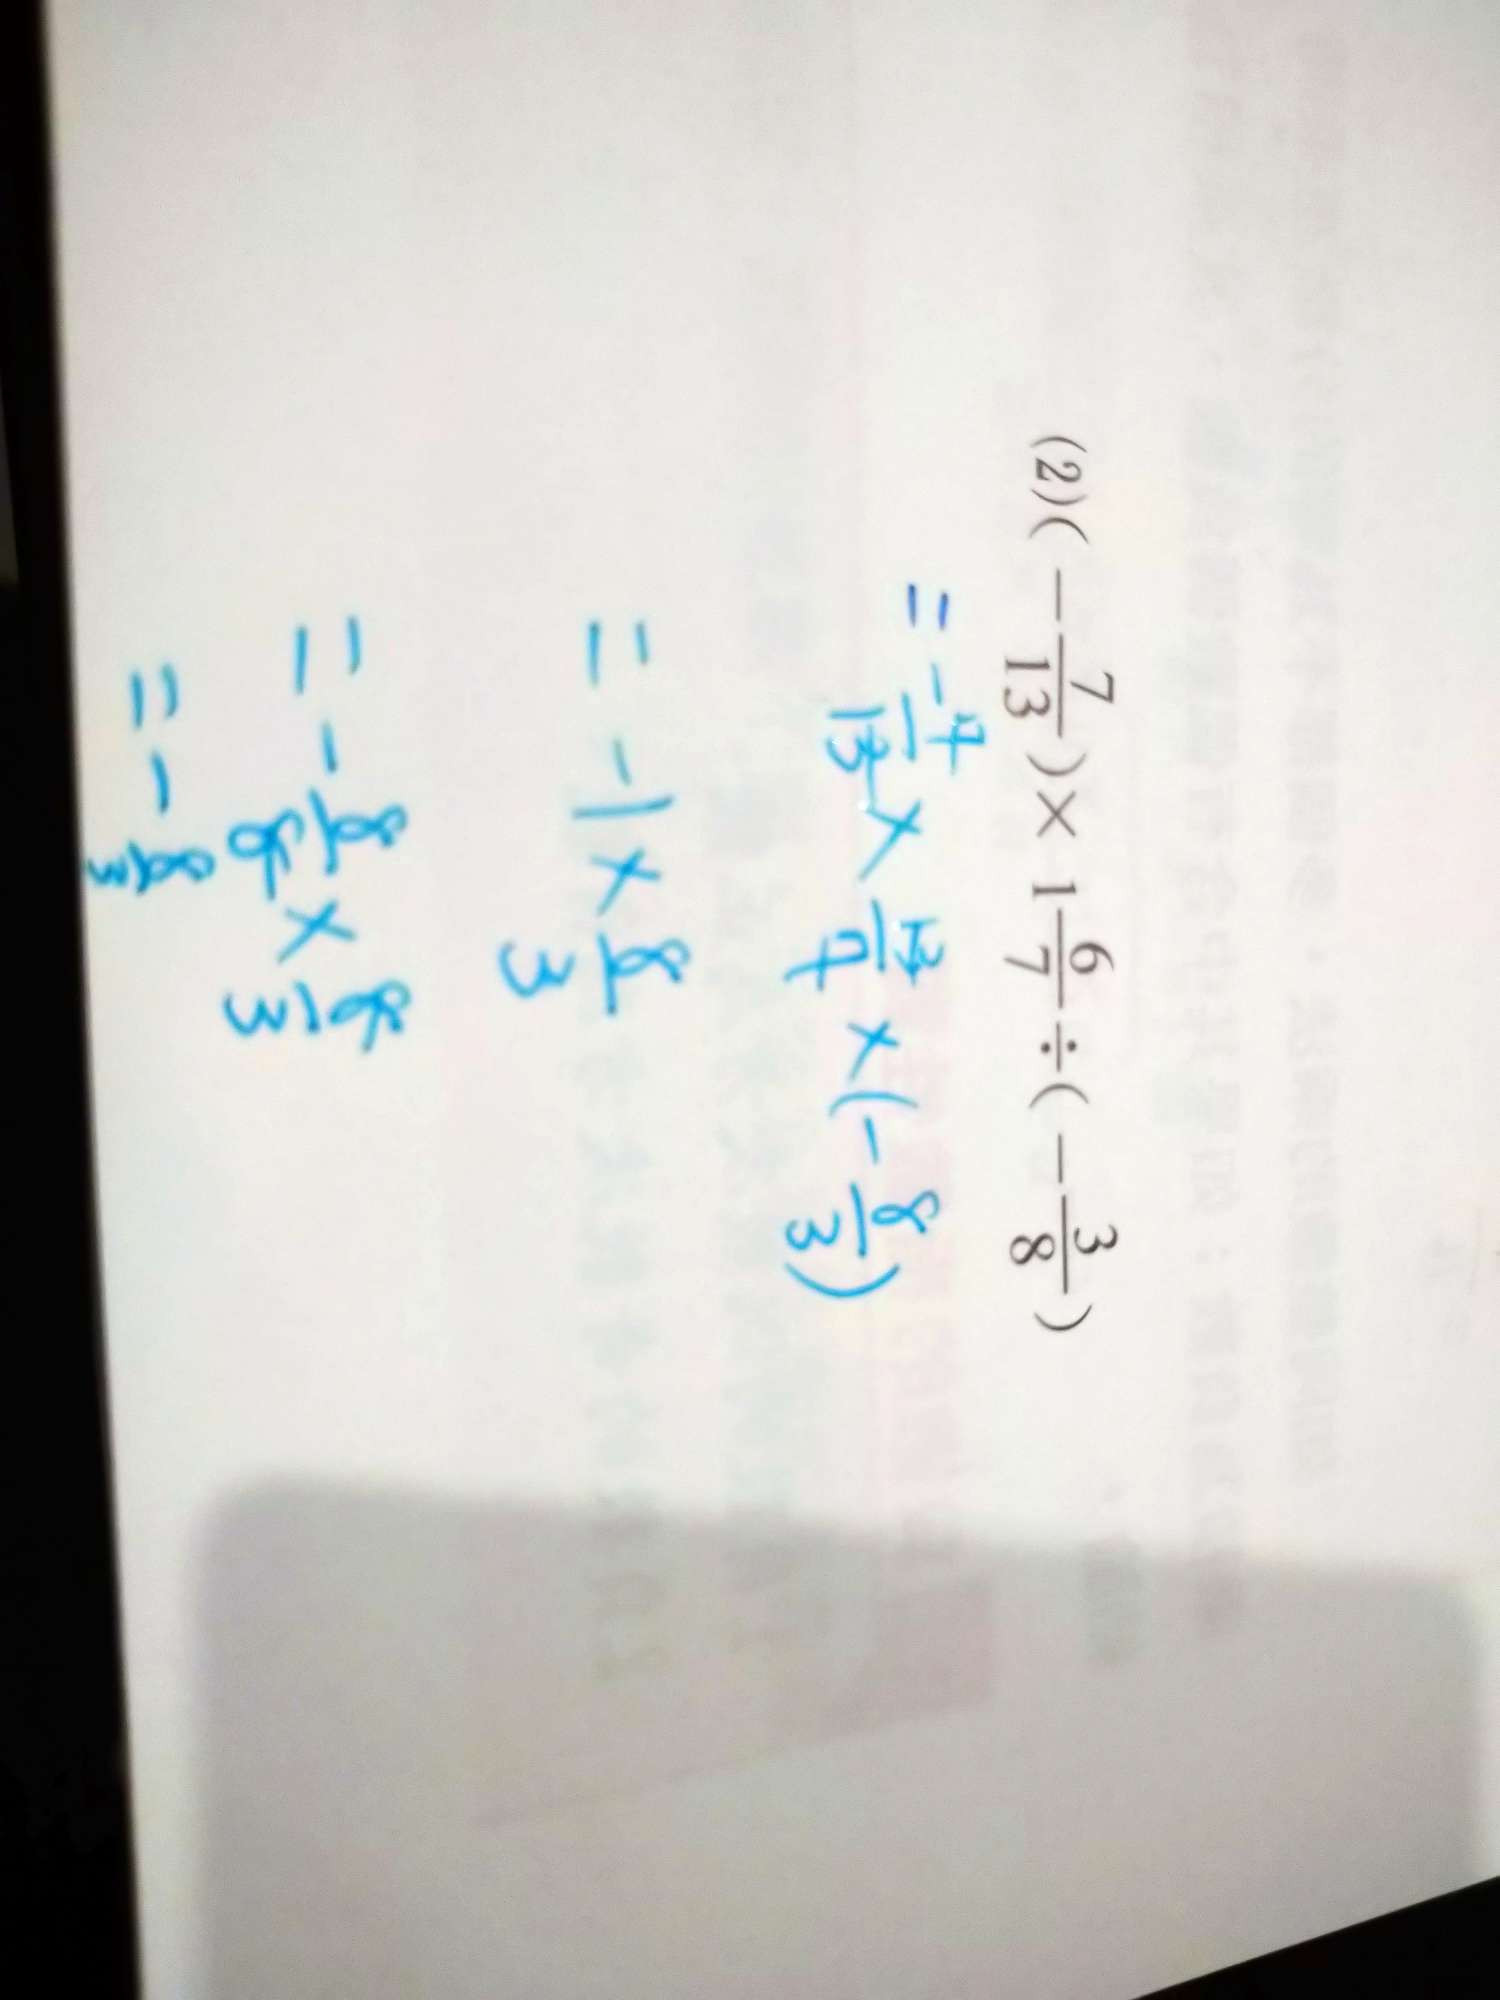 (2)(-7/13)×1 6/7÷(-3/8)
=-7/13×13/7×(-8/3)
=-1×8/3
=-8/8×8/3
=-8/3